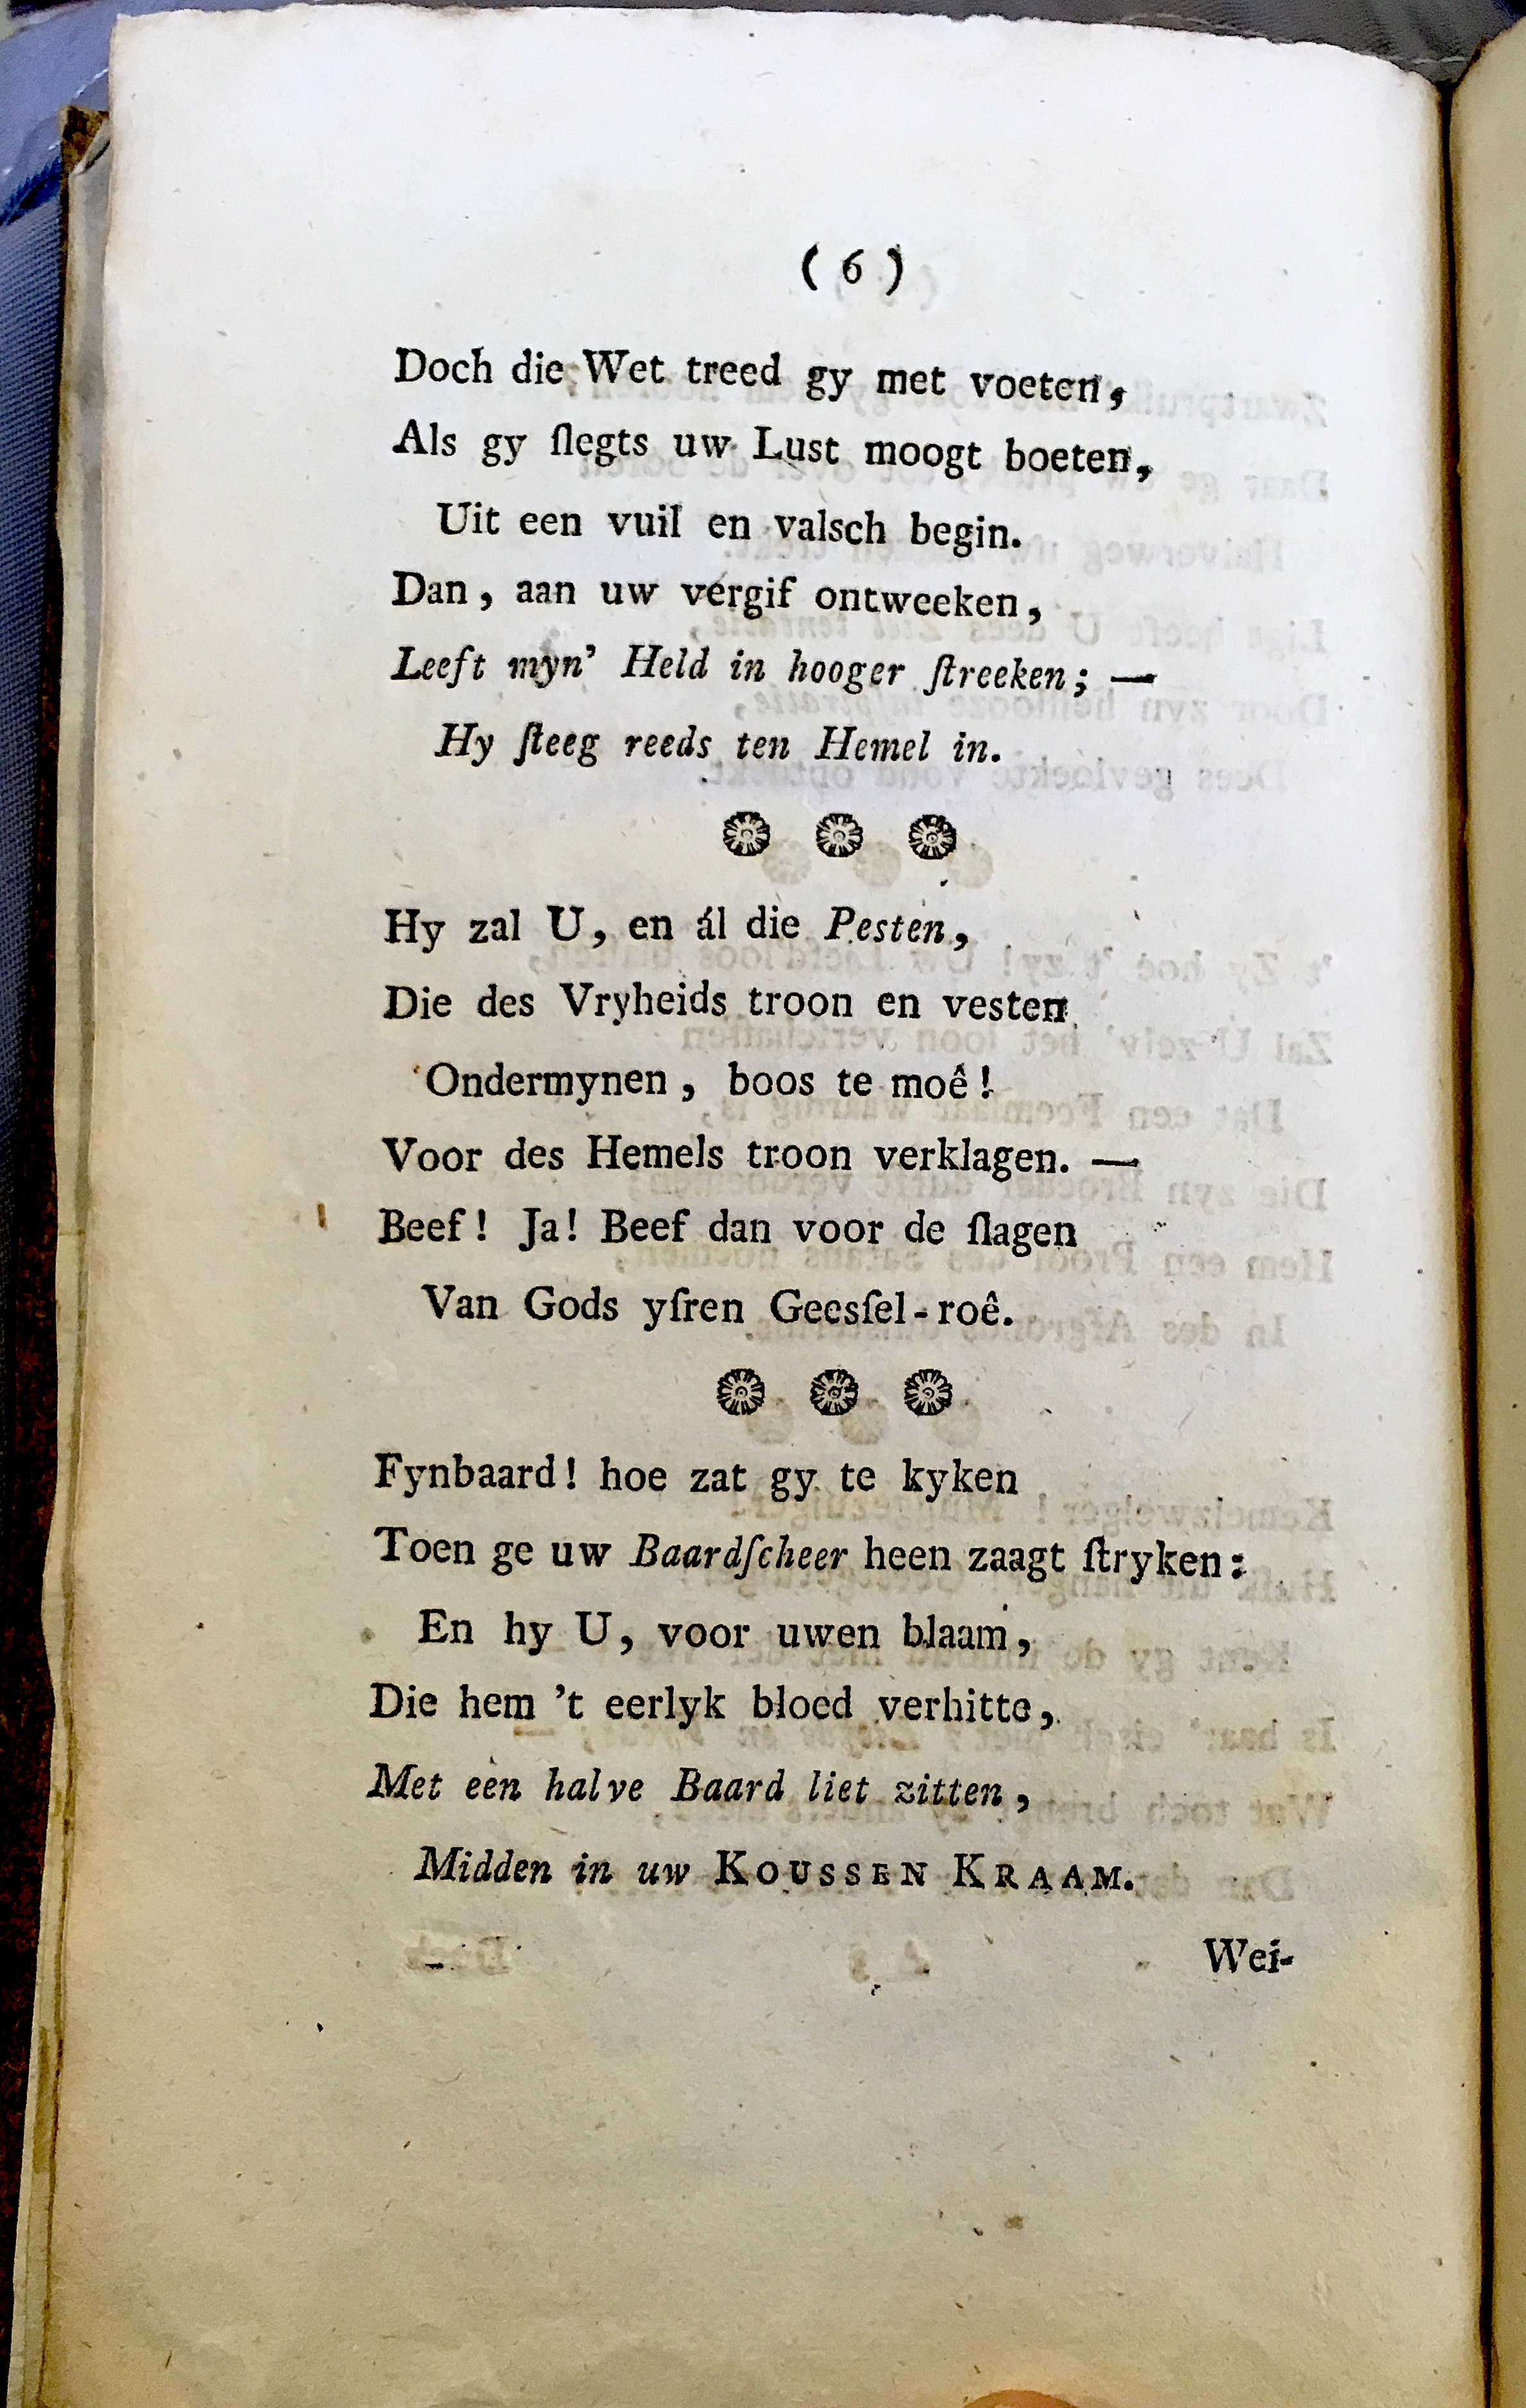 ( 6 )
Doch die Wet treed gy met voeten,
Als gy ſlegts uw Lust moogt boeten,
Uit een vuil en valsch begin.
Dan, aan uw vergif ontweeken,
Leeft myn’ Held in hooger ſtreeken; —
Hy ſteeg reeds ten Hemel in.
Hy zal U, en ál die Pesten,
Die des Vryheids troon en vesten
Ondermynen, boos te moê!
Voor des Hemels troon verklagen. —
Beef! Ja! Beef dan voor de ſlagen
Van Gods yſren Geesſel-roê.
Fynbaard! hoe zat gy te kyken
Toen ge uw Baardſcheer heen zaagt ſtryken:
En hy U, voor uwen blaam,
Die hem ’t eerlyk bloed verhitte,
Met een halve Baard liet zitten,
Midden in uw KOUSSEN KRAAM.
Wei-